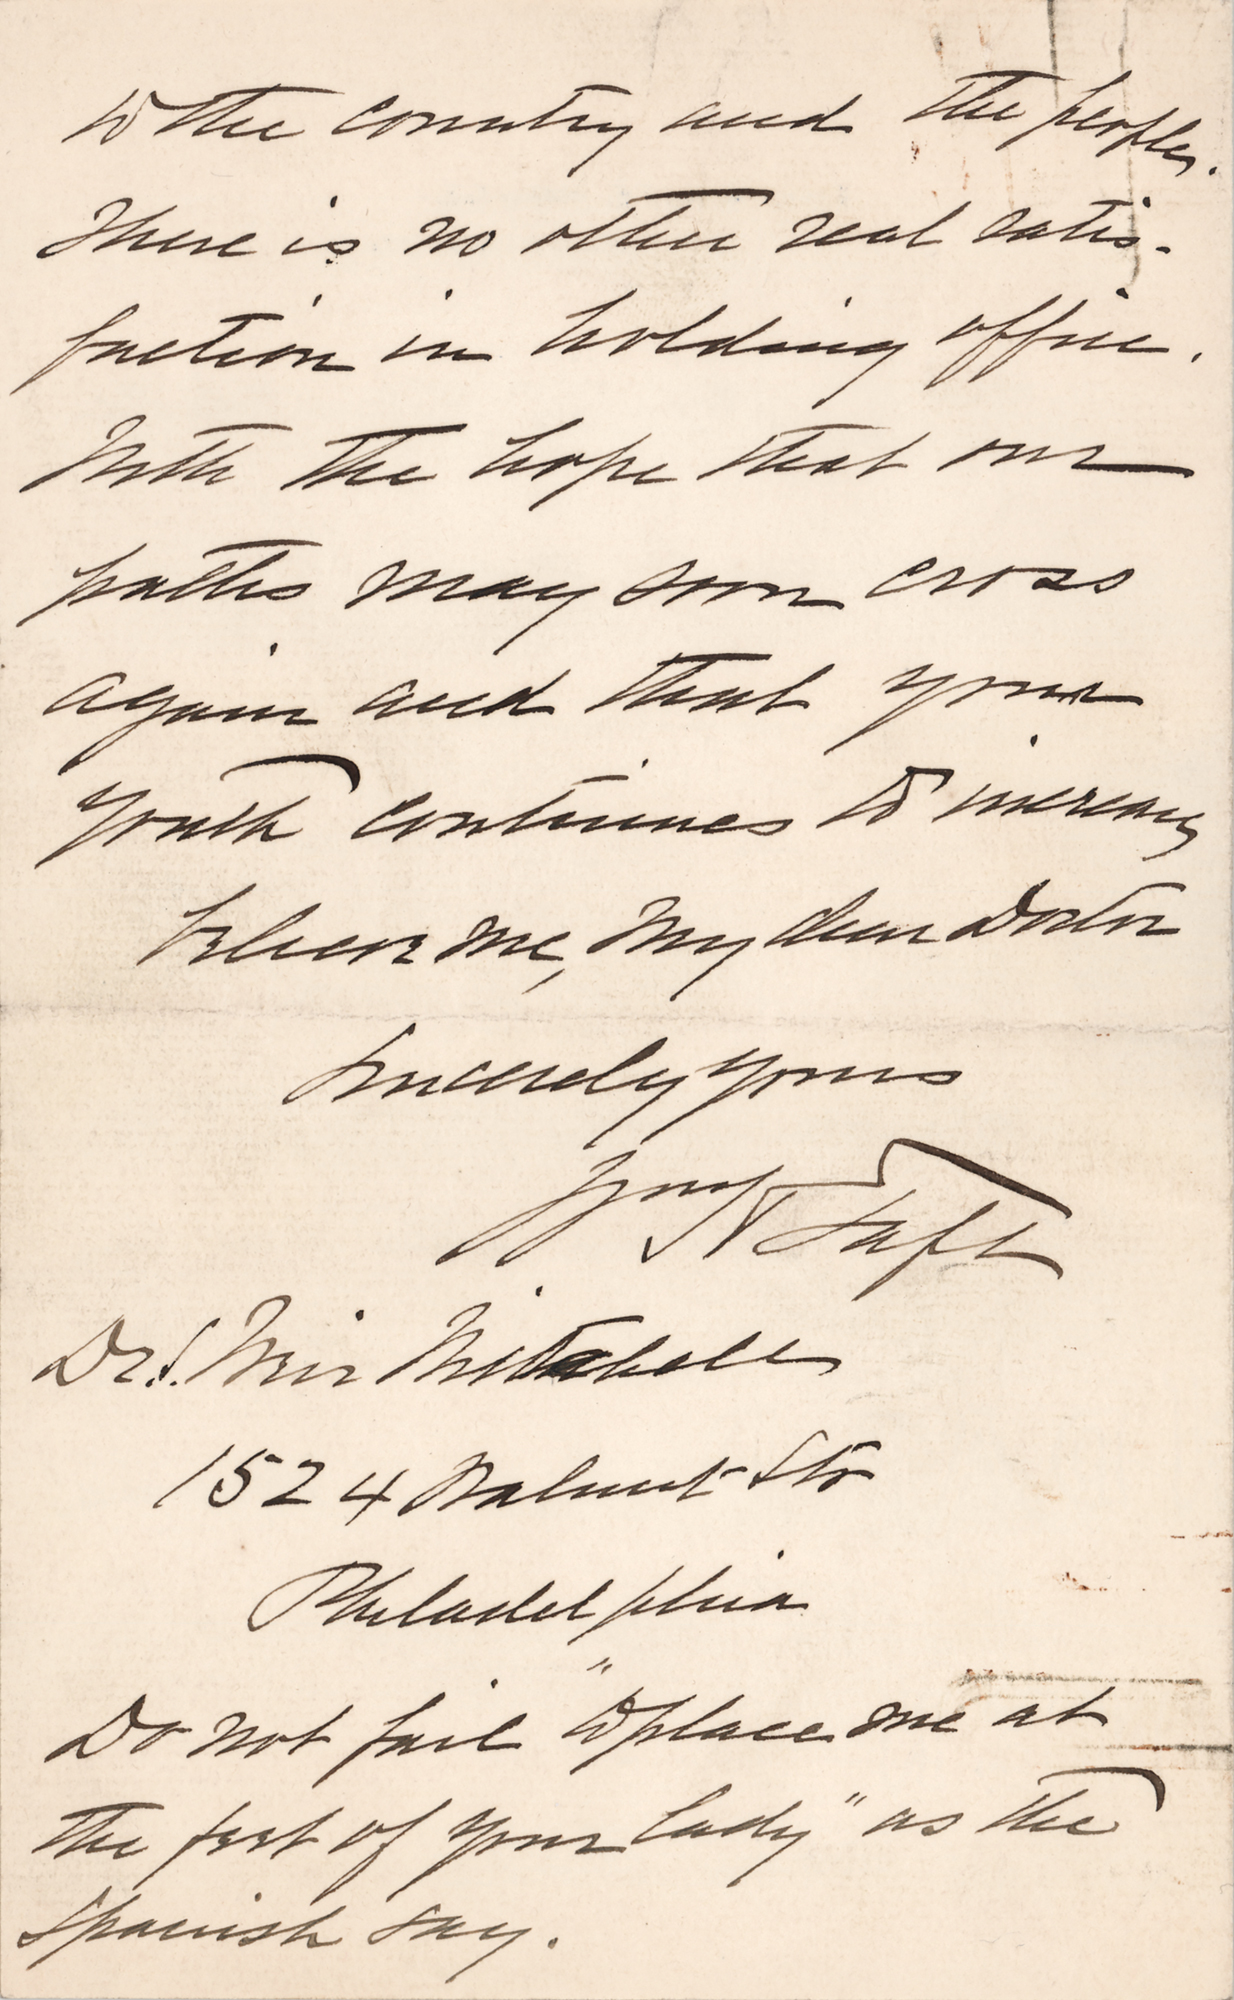 to the country and the people.
There is no other real satis-
faction in holding office.
With the hope that our
paths may soon cross
again and that your
youth continues to increase
believe me, my dear Doctor
Sincerely yours
Wm H Taft
Dr. S. Weir Mitchell
1524 Walnut Str
Philadelphia
Do not fail "to place me at
the feet of your lady" as the
Spanish say.